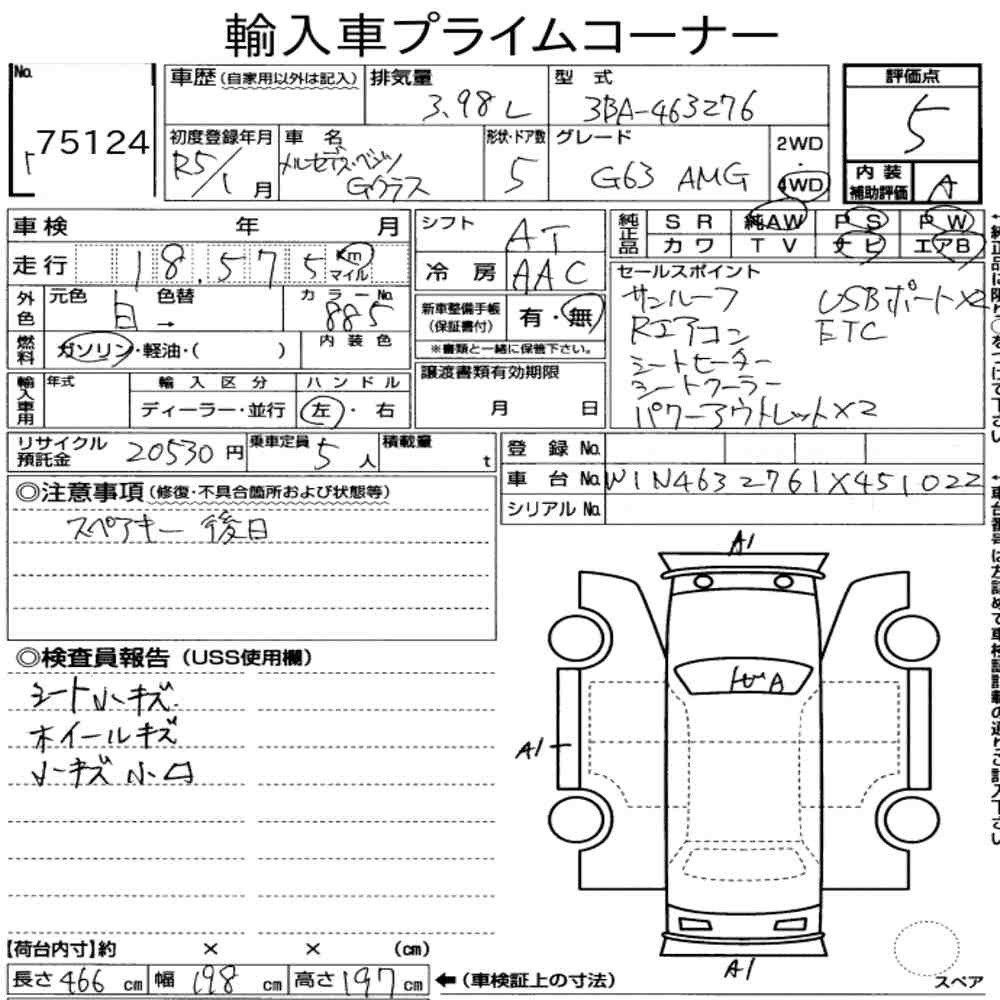 輸入車プライムコーナー
No. 75124
車歴 (自家用以外は記入)
排気量 3.98L
型式 3BA-463276
評価点 5
初度登録年月 R5/1月
車名 メルセデス・ベンツ Gクラス
形状・ドア数 5
グレード G63 AMG
2WD・4WD
内装補助評価 A
車検 年 月
シフト AT
純正品 SR 純AW PS PW
カワ TV ナビ エアB
走行 18,575 Km マイル
冷房 AAC
セールスポイント
サンルーフ USBポート×2
Rエアコン ETC
シートヒーター
シートクーラー
パワーアウトレット×2
外色 元色 白→ 色替 カラーNo. 885
新車整備手帳(保証書付) 有・無
※書類と一緒に保管下さい。
燃料 ガソリン・軽油・( ) 内装色
譲渡書類有効期限 月 日
輸入車用 年式 輸入区分 ハンドル
ディーラー・並行 左・右
リサイクル預託金 20530円 乗車定員 5人 積載量 t
登録No.
車台No. W1N4632761X451022
シリアルNo.
◎注意事項(修復・不具合箇所および状態等)
スペアキー 後日
◎検査員報告(USS使用欄)
シート小キズ
ホイールキズ
小キズ 小凹
A1
A
A1
A1
【荷台内寸】約 × × (cm)
長さ 466 cm 幅 198 cm 高さ 197 cm ←(車検証上の寸法)
スペア